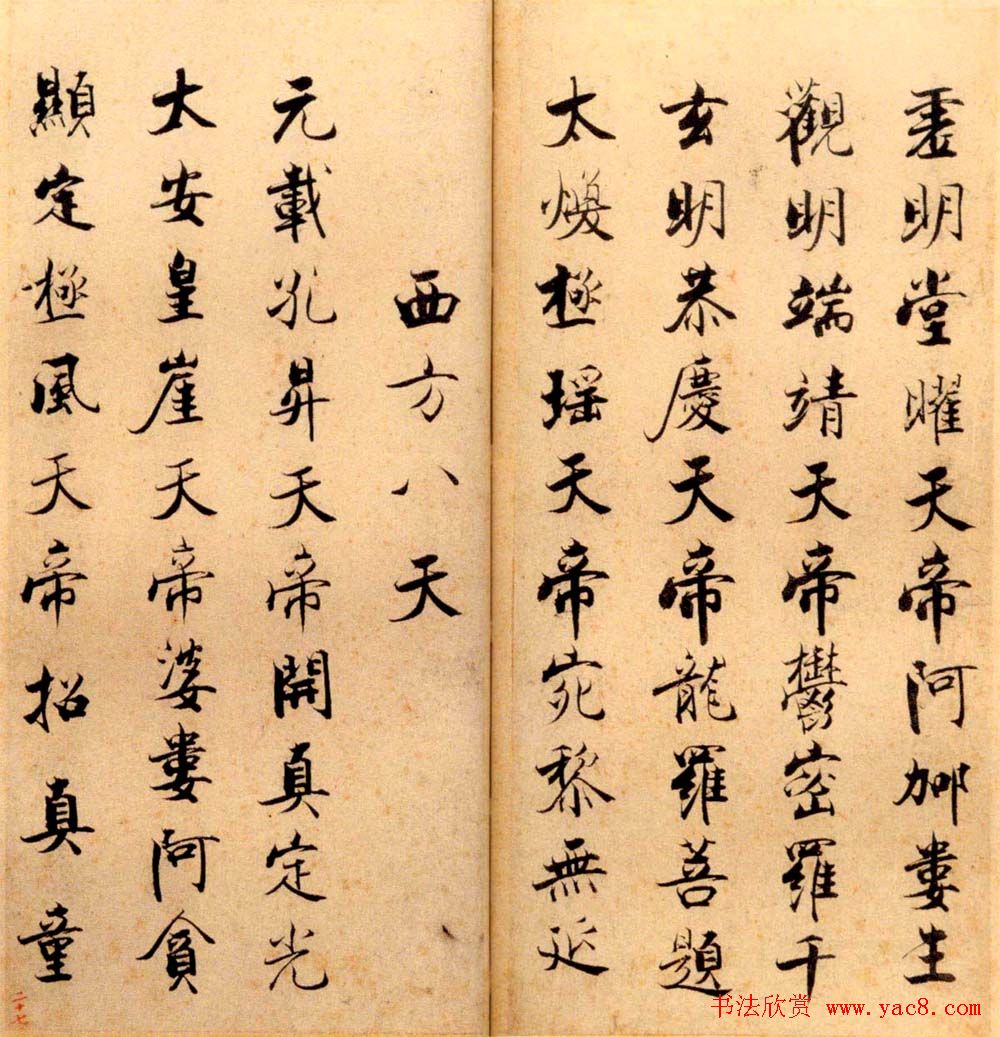 虛明堂曜天帝阿那婁生
觀明端靖天帝鬱密羅千
玄明恭慶天帝龍羅菩題
太煥極瑤天帝宛黎無延
西方八天
元載孔昇天帝開真定光
大安皇崖天帝婆婁阿貪
顯定極風天帝招真童
二十七
书法欣赏 www.yac8.com